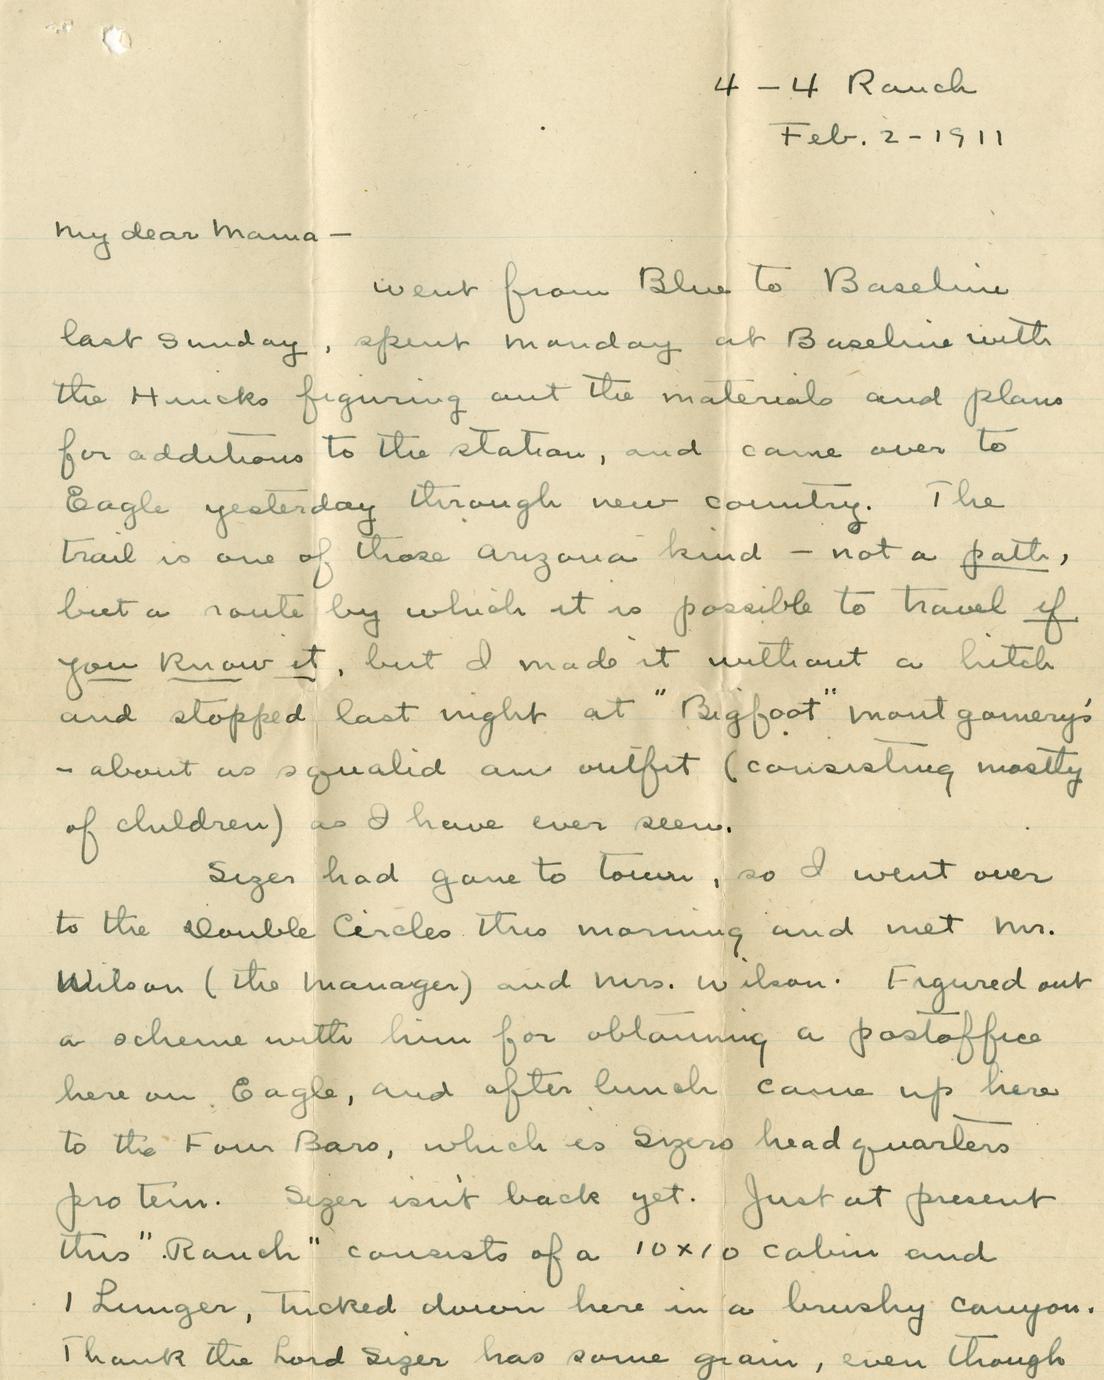 4 - 4 Ranch
Feb. 2 - 1911
My dear Mama -
went from Blue to Baseline
last Sunday, spent Monday at Baseline with
the Hincks figuring out the materials and plans
for additions to the station, and came over to
Eagle yesterday through new country. The
trail is one of those Arizona kind - not a path,
but a route by which it is possible to travel if
you know it, but I made it without a hitch
and stopped last night at "Bigfoot" Montgomery's
- about as squalid an outfit (consisting mostly
of children) as I have ever seen.
Sizer had gone to town, so I went over
to the Double Circles this morning and met Mr.
Wilson (the Manager) and Mrs. Wilson. Figured out
a scheme with him for obtaining a postoffice
here on Eagle, and after lunch came up here
to the Four Bars, which is Sizers headquarters
pro tem. Sizer isn't back yet. Just at present
this "Ranch" consists of a 10x10 cabin and
1 Lunger, tucked down here in a brushy canyon.
Thank the Lord Sizer has some grain, even though